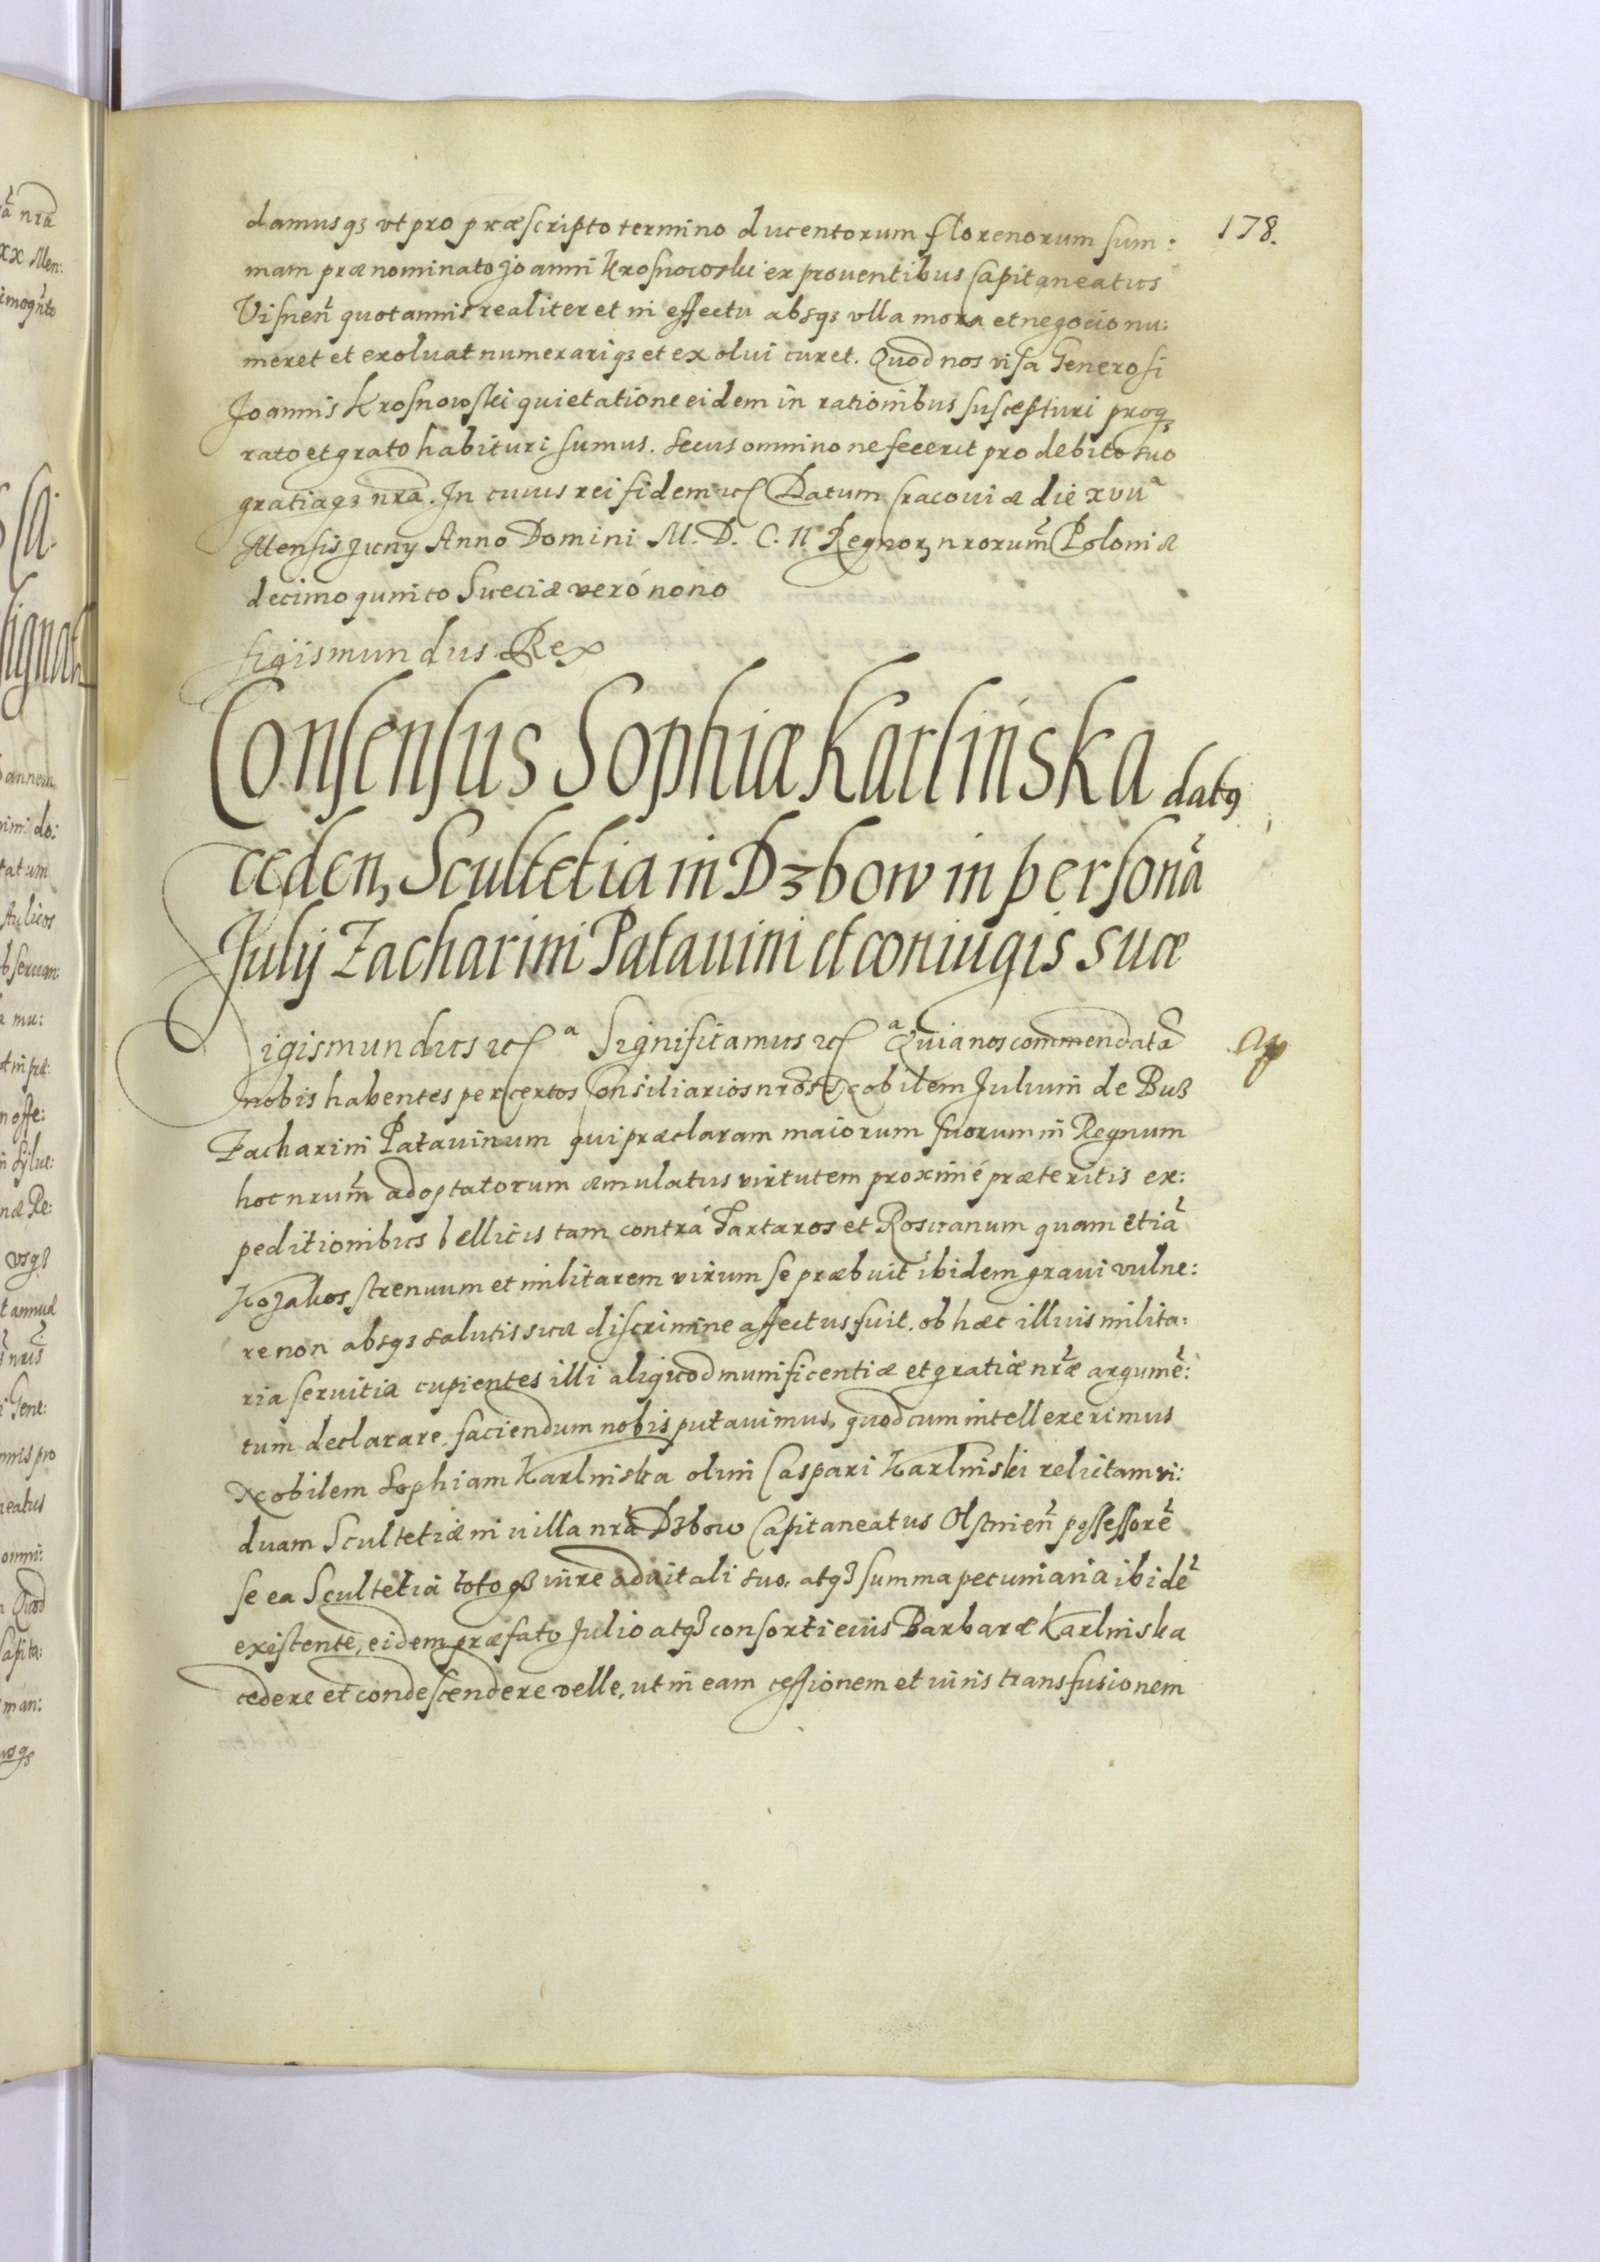 178.
damusq3 vt pro præscripto termino ducentorum florenorum sum:
mam prænominato Joanni Krosnowski ex prouentibus Capitaneatus
Visnen̄ quotannis realiter et in effectu absq3 vlla mora et negocio nu:
meret et exoluat numerariq3 et exolui curet. Quod nos visa Generosi
Joannis Krosnowski quietatione eidem in rationibus suscepturi proq3
rato et grato habituri sumus. Secus omnino ne fecerit pro debito suo
gratiaq3 nr̄a. In cuius rei fidem etc Datum Cracouiæ die xvııª
Mensis Juny Anno Domini M. D. C. II Regnor3 nrorum̄ Poloniæ
decimo quinto Sueciæ veró nono
Sigismundus Rex
Consensus Sophiæ Karlińska datq
ceden, Scultetia in D3bow in personā
Julij Zacharini Patauini et coniugis suæ
Sigismundus etcª Significamus etcª Quia nos commendatū
nobis habentes per certos Consiliarios nr̄os Nobilem Julium de Bu3
Zacharini Patauinum qui præclaram maiorum suorum in Regnum
hoc nrum̄ adoptatorum æmulatus virtutem proximé præteritis ex:
peditionibus bellicis tam contrá Tartaros et Roswanum quam etiā
Kozakos strenuum et militarem virum se præbuit ibidem graui vulne:
re non absq3 salutis suæ discrimine affectus fuit. ob hæc illius milita:
ria seruitia cupientes illi aliquod munificentiæ et gratiæ nr̄æ argumē:
tum declarare. faciendum nobis putauimus, quod cum intellexerimus
Nobilem Sophiam Karlniska olim Caspari Karlniski relictam vi:
duam Scultetiæ in villa nr̄a D3bow Capitaneatus Olstinien̄ possessorē
se ea Scultetia totoq3 iure aduitali suo, atq3 summa pecuniaria ibidē
existente, eidem præfato Julio atq3 consorti eius Barbaræ Karlniska
cedere et condescendere velle, ut in eam cessionem et iuris transfusionem